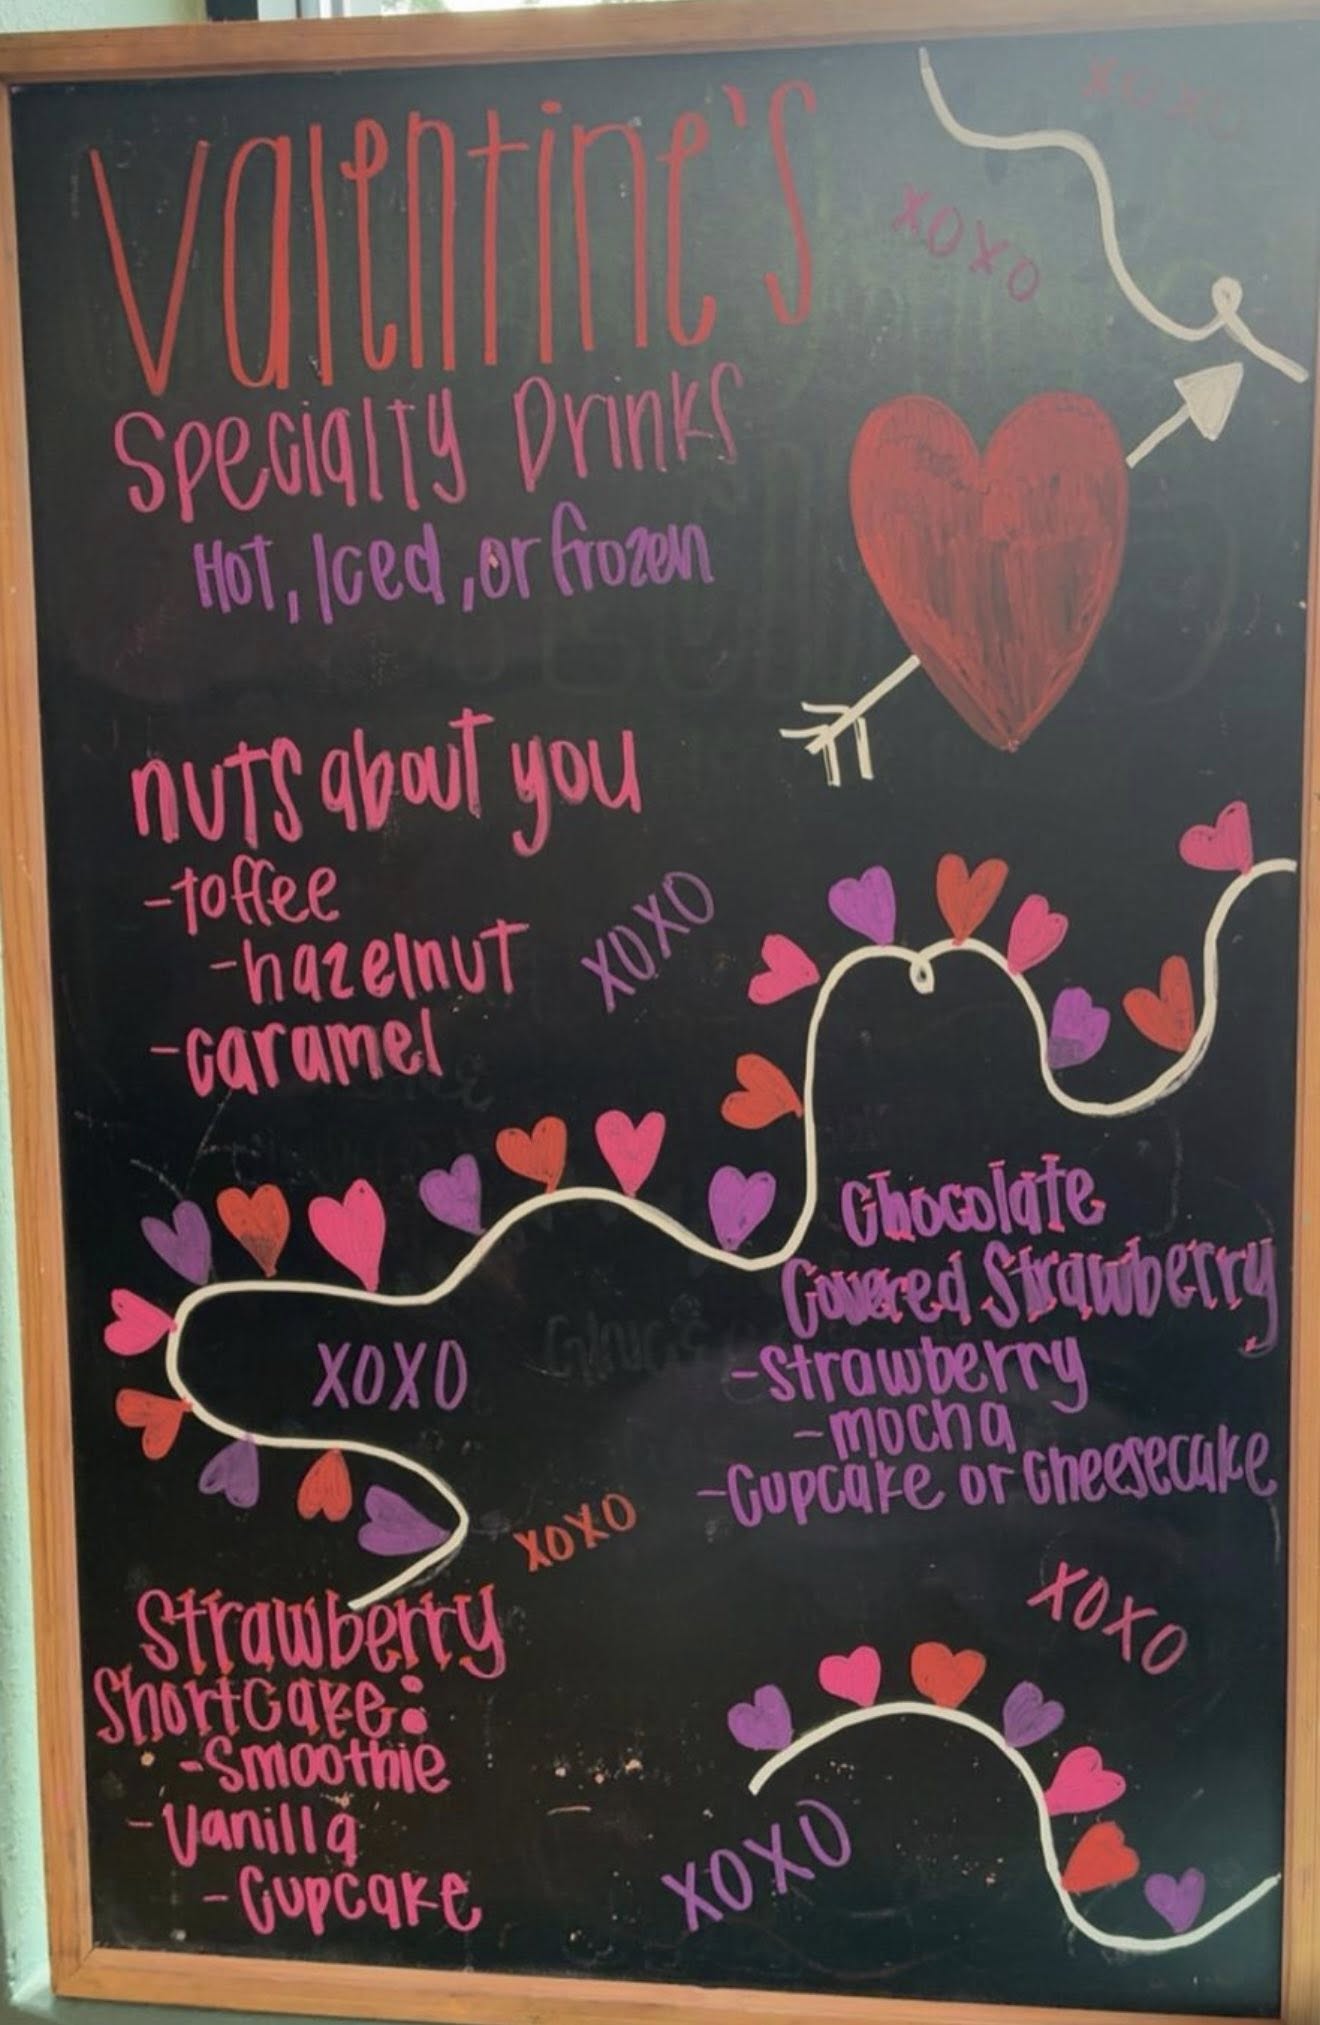 Valentine's
XOXO
XOXO
Specialty Drinks
Hot, Iced, or frozen
nuts about you
-toffee
-hazelnut
-caramel
XOXO
Chocolate
Covered Strawberry
-Strawberry
-mocha
-Cupcake or Cheesecake
XOXO
XOXO
XOXO
Strawberry
Shortcake:
-Smoothie
-Vanilla
-Cupcake
XOXO